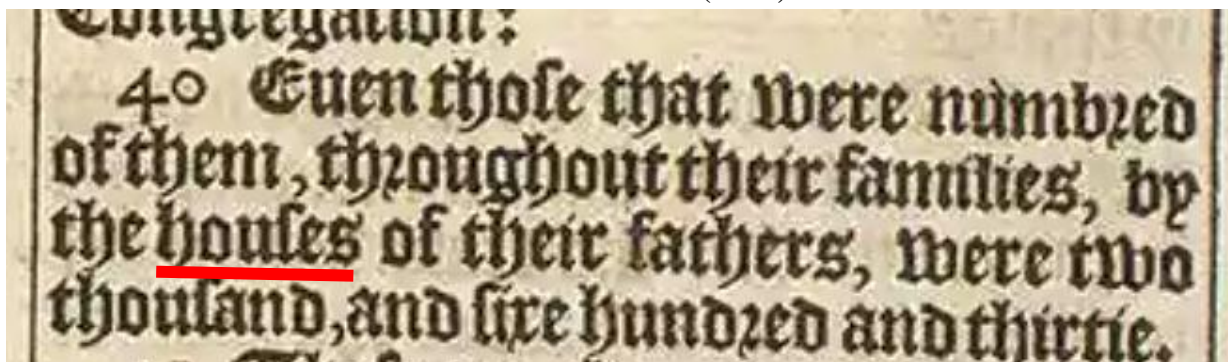 Congregation:
40 Euen thoſe that were numbred
of them, throughout their families, by
the houſes of their fathers, were two
thouſand, and ſixe hundred and thirtie.